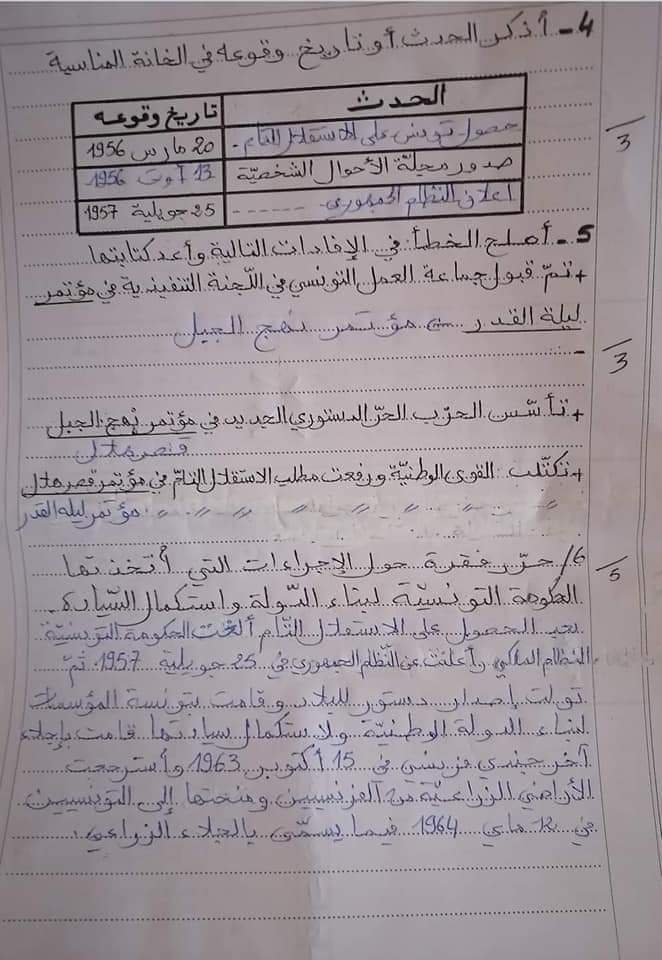 4- أذكر الحدث أو تاريخ وقوعه في الخانة المناسبة
3
الحدث تاريخ وقوعه
حصول تونس على الاستقلال التام. 20 مارس 1956
صدور مجلّة الأحوال الشخصيّة 13 أوت 1956
اعلان النظام الجمهوري 25 جويلية 1957
5- أصلح الخطأ في الإفادات التالية وأعد كتابتها
+ تمّ قبول جماعة العمل التونسي في اللّجنة التنفيذية في مؤتمر
ليلة القدر مؤتمر نهج الجبل
3
+ تأسّس الحزب الحرّ الدستوري الجديد في مؤتمر نهج الجبل
قصر هلال
+ تكتّلت القوى الوطنيّة ورفعت مطلب الاستقلال التامّ في مؤتمر قصر هلال
" " " " " " " مؤتمر ليلة القدر
6/ حرّر فقرة حول الإجراءات التي اتخذتها
5
الحكومة التونسيّة لبناء الدّولة واستكمال السّيادة.
بعد الحصول على الاستقلال التّام ألغت الحكومة التونسيّة
النظام الملكي وأعلنت عن النّظام الجمهوري في 25 جويلية 1957. ثمّ
تولت إصدار دستور للبلاد وقامت بتونسة المؤسسات
لبناء الدولة الوطنيّة ولاستكمال سيادتها قامت بإجلاء
آخر جندي فرنسي في 15 أكتوبر 1963 واسترجعت
الأراضي الزراعيّة من الفرنسيين ومنحتها إلى التونسيين
في 12 ماي 1964 فيما يسمّى بالجلاء الزراعي.